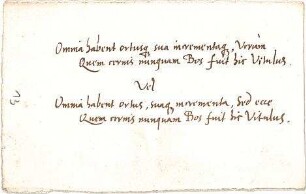 Omnia habent ortusq; sua incrementaq; Verùm
Quem cernis nunquam Bos fuit hic Vitulus.
Vel
Omnia habent ortus, suaq; incrementa, Sed ecce
Quem cernis nunquam Bos fuit hic Vitulus.